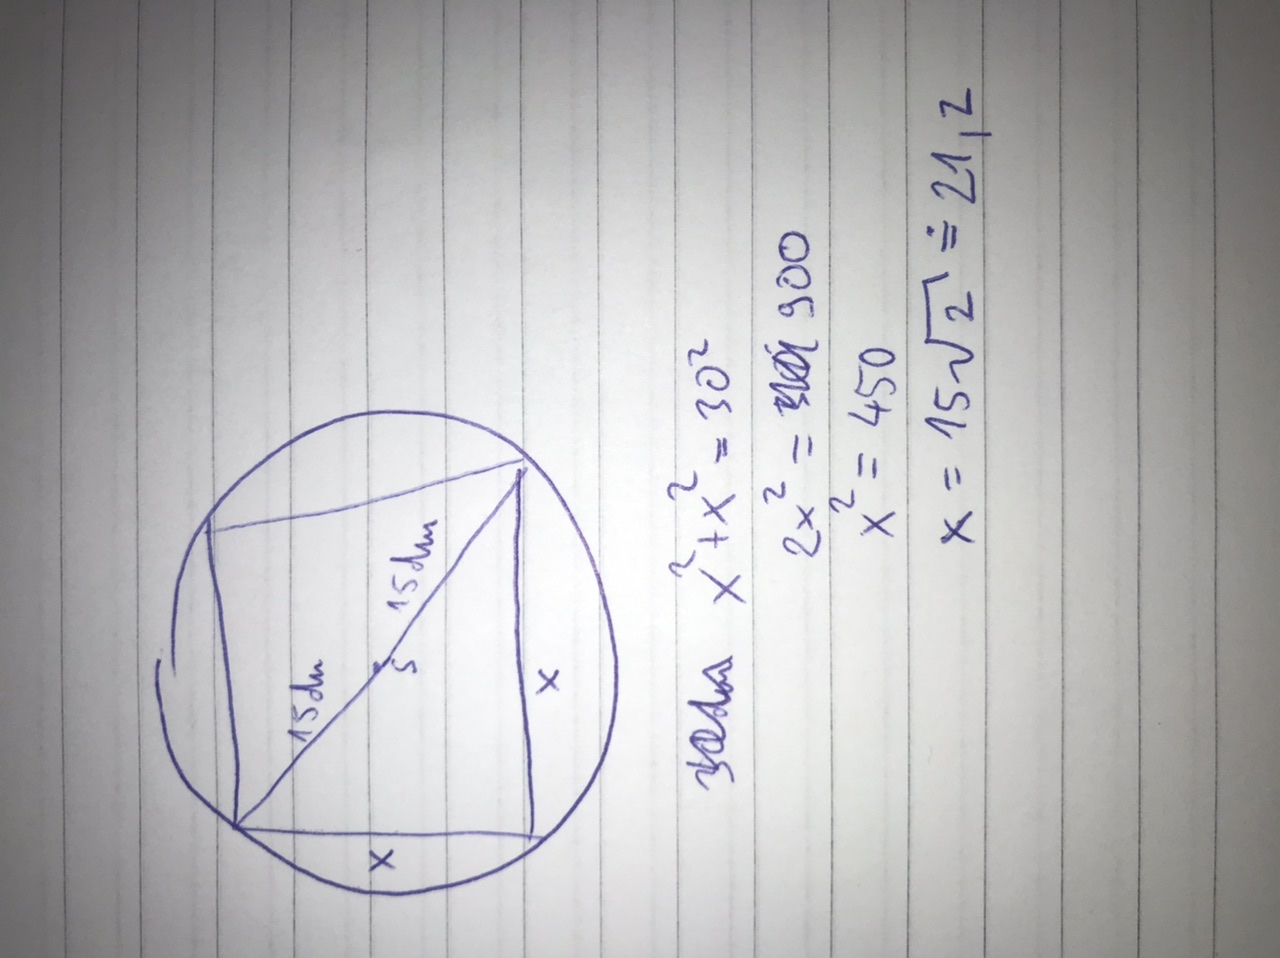 15dm
15dm
S
x
x
x²+x² = 30²
2x² = 900
x² = 450
x = 15√2 ≐ 21,2